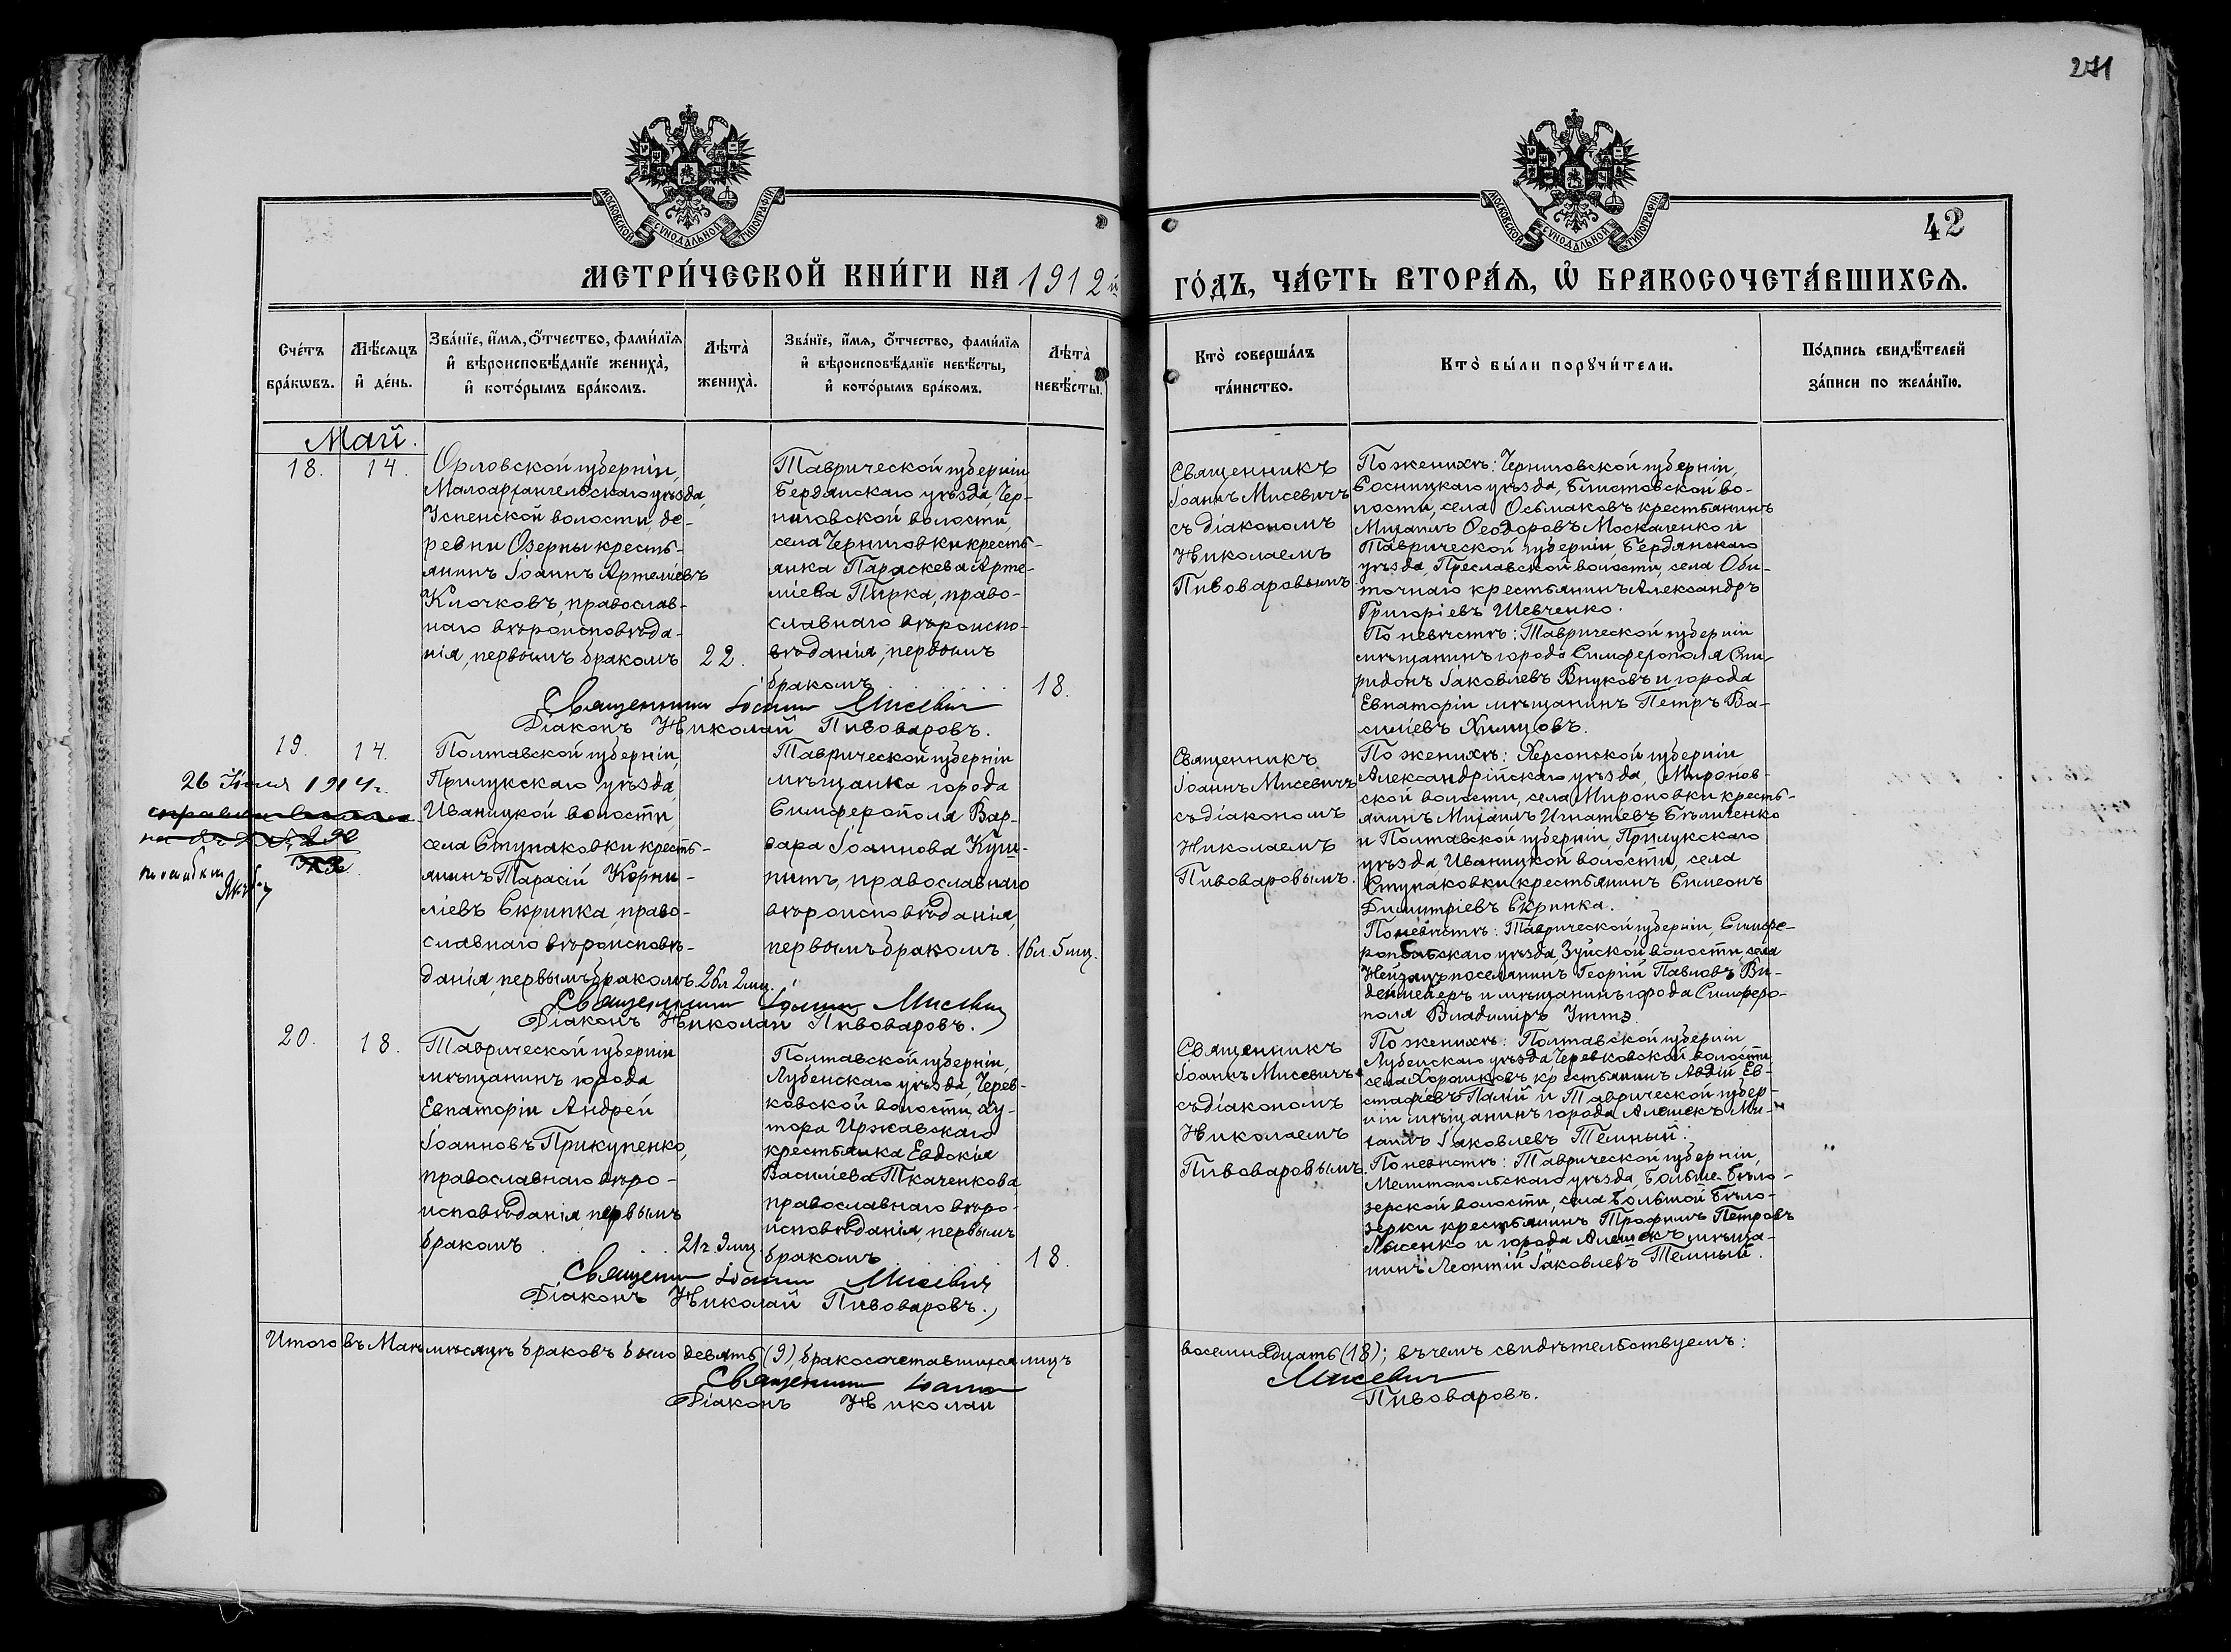 271
МОСКОВСКОЙ СУНОДАЛЬНОЙ ТИПОГРАФІИ
МОСКОВСКОЙ СУНОДАЛЬНОЙ ТИПОГРАФІИ
42
МЕТРИ́ЧЕСКОЙ КНИ́ГИ НА 1912й
ГО́ДЪ, ЧА́СТЬ ВТОРА́Я, Ѡ҆ БРАКОСОЧЕТА́ВШИХСЯ.
Сче́тъ
бра́кѡвъ.
Мѣ́сяцъ
и҆ де́нь.
Зва́нїе, и҆́мя, о҆́тчество, фами́лїя
и҆ вѣроисповѣ́данїе жениха̀,
и҆ кото́рымъ бра́комъ.
Лѣта̀
жениха̀.
Зва́нїе, и҆́мя, о҆́тчество, фами́лїя
и҆ вѣроисповѣ́данїе невѣ́сты,
и҆ кото́рымъ бра́комъ.
Лѣта̀
невѣ́сты.
Кто̀ соверша́лъ
та́инство.
Кто̀ бы́ли порꙋчи́тели.
По́дпись свидѣ́телей
за́писи по жела́нїю.
Май.
18.
14.
Орловской губерніи,
Малоархангельскаго уѣзда,
Успенской волости, де-
ревни Озерны кресть-
янинъ Іоаннъ Артеміевъ
Клочковъ, православ-
наго вѣроисповѣда-
нія, первымъ бракомъ
22.
Таврической губерніи
Бердянскаго уѣзда, Чер-
ниговской волости,
села Черниговки кресть-
янка Параскева Арте-
міева Пирка, право-
славнаго вѣроиспо-
вѣданія, первымъ
бракомъ
18.
Священникъ Іоаннъ Мисевичъ
Діаконъ Николай Пивоваровъ.
Священникъ
Іоаннъ Мисевичъ
съ діакономъ
Николаемъ
Пивоваровымъ.
По женихѣ: Черниговской губерніи,
Сосницкаго уѣзда, Блистовской во-
лости, села Осьмаковъ крестьянинъ
Михаилъ Ѳеодоровъ Москаленко и
Таврической губерніи, Бердянскаго
уѣзда, Преславской волости, села Оби-
точнаго крестьянинъ Александръ
Григоріевъ Шевченко.
По невѣстѣ: Таврической губерніи
мѣщанинъ города Симферополя Спи-
ридонъ Іаковлевъ Внуковъ и города
Евпаторіи мѣщанинъ Петръ Ва-
силіевъ Химцовъ.
19.
14.
26 Іюля 1914г.
Полтавской губерніи,
Прилукскаго уѣзда,
Иваницкой волости,
села Ступаковки кресть-
янинъ Тарасій Корни-
ліевъ Скрипка, право-
славнаго вѣроисповѣ-
данія, первымъ бракомъ
26л. 2мц.
Таврической губерніи
мѣщанка города
Симферополя Вар-
вара Іоаннова Куш-
нитъ, православнаго
вѣроисповѣданія,
первымъ бракомъ.
16л. 5мц.
Священникъ Іоаннъ Мисевичъ
Діаконъ Николай Пивоваровъ.
Священникъ
Іоаннъ Мисевичъ
съ діакономъ
Николаемъ
Пивоваровымъ.
По женихѣ: Херсонской губерніи
Александрійскаго уѣзда, Миронов-
ской волости, села Мироновки кресть-
янинъ Михаилъ Игнатіевъ Бѣличенко
и Полтавской губерніи, Прилукскаго
уѣзда, Иваницкой волости, села
Ступаковки крестьянинъ Симеонъ
Димитріевъ Скрипка.
По невѣстѣ: Таврической губерніи, Симфе-
ропольскаго уѣзда, Зуйской волости, села
Нейзацъ поселянинъ Георгій Павловъ Ви-
демейеръ и мѣщанинъ города Симферо-
поля Владиміръ Уттэ.
20.
18.
Таврической губерніи
мѣщанинъ города
Евпаторіи Андрей
Іоанновъ Прикупенко,
православнаго вѣро-
исповѣданія, первымъ
бракомъ
21г. 9мц.
Полтавской губерніи,
Лубенскаго уѣзда, Черев-
ковской волости, ху-
тора Иржавскаго
крестьянка Евдокія
Василіева Ткаченкова,
православнаго вѣро-
исповѣданія, первымъ
бракомъ
18.
Священникъ Іоаннъ Мисевичъ
Діаконъ Николай Пивоваровъ.
Священникъ
Іоаннъ Мисевичъ
съ діакономъ
Николаемъ
Пивоваровымъ.
По женихѣ: Полтавской губерніи,
Лубенскаго уѣзда, Черевковской волости,
села Хорошковъ крестьянинъ Авдій Ев-
стафіевъ Палій и Таврической губер-
ніи мѣщанинъ города Алешекъ Ми-
хаилъ Іаковлевъ Темный.
По невѣстѣ: Таврической губерніи,
Мелитопольскаго уѣзда, Больше-Бѣло-
зерской волости, села Большой Бѣло-
зерки крестьянинъ Трофимъ Петровъ
Лысенко и города Алешекъ мѣща-
нинъ Леонтій Іаковлевъ Темный.
Итого въ Маѣ мѣсяцѣ браковъ было девять (9), бракосочетавшихся лицъ
восемнадцать (18); въ чемъ свидѣтельствуемъ:
Священникъ Іоаннъ
Мисевичъ
Діаконъ Николай
Пивоваровъ.